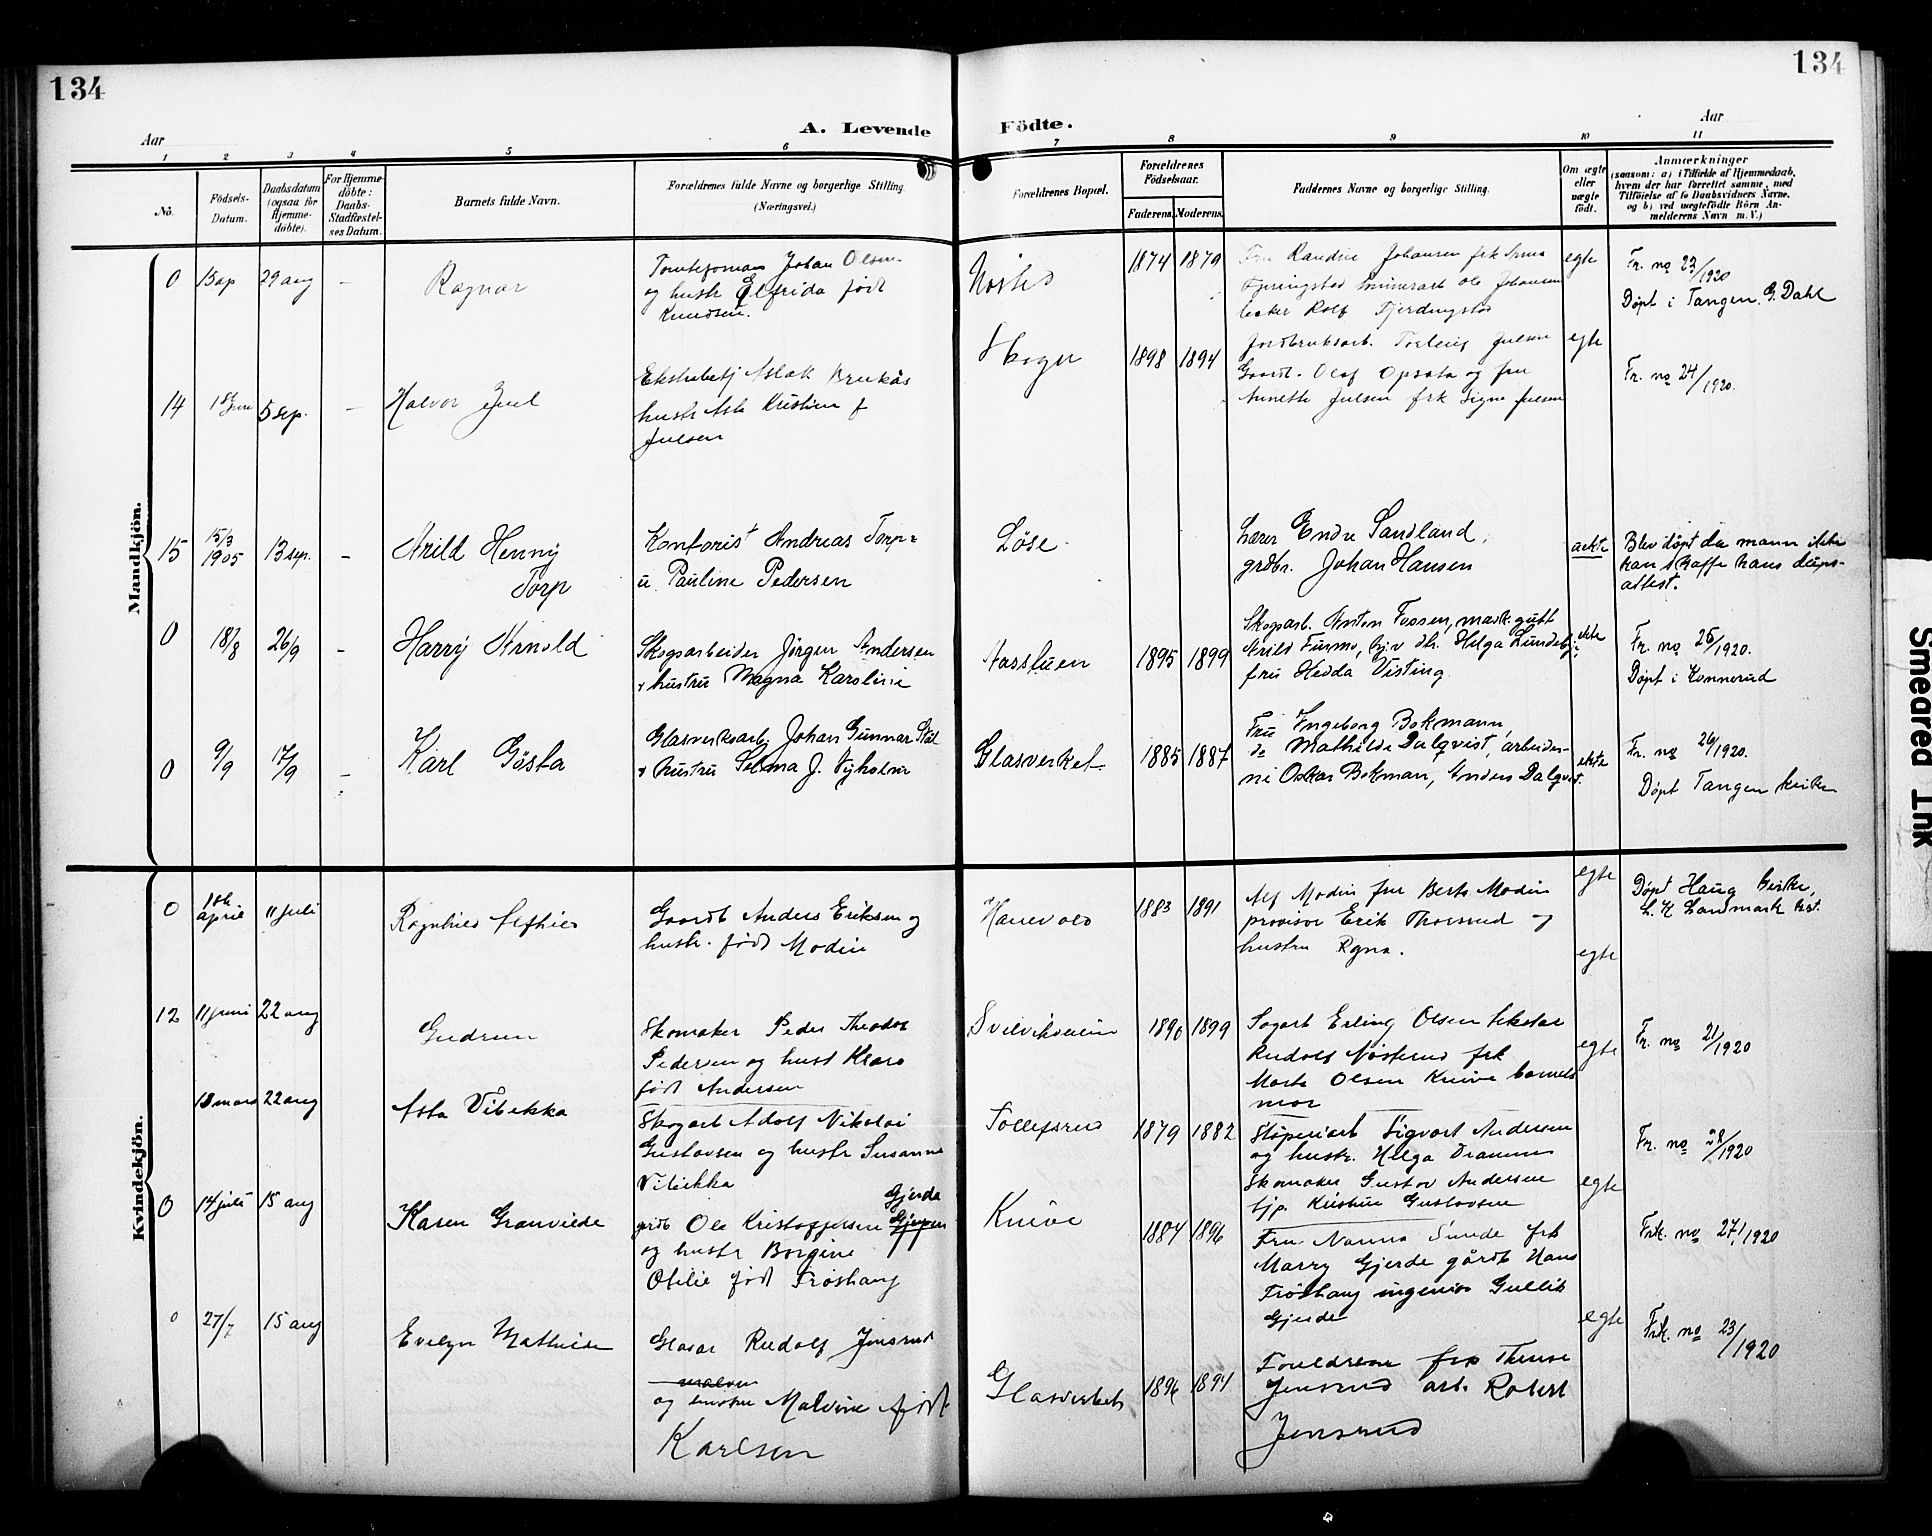 134
134
A. Levende Födte.
Aar
Aar
1 2 3 4 5 6 7 8 9 10 11
No.
Födsels-Datum.
Daabsdatum (ogsaa for Hjemmedøbte).
For Hjemmedöbte: Daabs-Stadfæstelses Datum.
Barnets fulde Navn.
Forældrenes fulde Navne og borgerlige Stilling.
(Næringsvei.)
Forældrenes Bopæl.
Forældrenes Födselsaar.
Faderens. Moderens.
Faddernes Navne og borgerlige Stilling.
Om ægte eller uægte födt.
Anmærkninger
(saasom: a) i Tilfælde af Hjemmedaab,
hvem der har forrettet samme, med
Tilföielse af to Daabsvidners Navne,
og b) ved uægtefödte Börn Anmelderens Navn m. V.)
Mandkjön.
0 29 aug – Ragnar
Johan Olsen
og hustr Elfrida født
Knudsen.
1874 1879
Fru Randine Johansen frk
Ole Johansen
Rolf
egte
Fr. no 23/1920
Døpt i Tangen. G. Dahl
14 5 sep. – Halvor Juel
Aslak
hustr Asta Kristine f
Julsen
Skoger 1898 1894
Julsen
Gaardb. Olaf Opsata og fru
Annette Julsen frk Signe Julsen
egte
Fr. no 24/1920.
15 15/3 1905 13 sep. – Arild Henny
Torp
Kontorist Andreas Torp
u Pauline Pedersen
Løse
Lærer Endre Sandland,
grdbr. Johan Hansen
aekte
Blev døpt da mann ikke
kan skaffe hans dåps-
attest.
0 18/8 26/9 – Harry Arnold
Skogsarbeider Jörgen Andersen
+ hustru Magna Karoline
Aassluen 1895 1899
Skogarb. Anton Fossen, mask.gutt
Arild Furmo, Helga
fru Hedda Visting
ekte
Fr. no 25/1920.
Døpt i Konnerud
0 9/9 17/9 – Karl Gösta
Glasverksarb. Johan Gunnar Stål
+ hustru Selma J.
Glasverket 1885 1887
Fru Ingeborg Bokmann,
do Mathilde Dalqvist, arbeider-
ne Oskar Bokman, Anders Dalqvist.
ekte
Fr. no 26/1920.
Døpt Tangen kirke
Kvindekjön.
0 10de april 11 juli Ragnhild
Gaardb Anders Eriksen og
hustr. født Modin
Hanevold 1883 1891
Alf Modin fru Berta Modin
provisor Erik Thorsrud og
hustru Ragna.
egte
egte
Døpt Haug kirke,
L. K. Landmark kst.
12 11 juni 22 aug Gudrun
Skomaker Peder Theodor
Pedersen og hust Klara
født Andersen
1890 1899
Erling Olsen
Rudolf Nøsterud frk
Marta Olsen Knive barnets
mor
egte
Fr. no 21/1920
18 mars 22 aug Asta Vibekka
Skogarb Adolf Nikolai
Gustavsen og hustr Susanne
Vibekka
Tollefsrud 1879 1882
Støperiarb Sigvart Andersen
og hustr. Helga Drammen
Skomaker Gustav Andersen
tjp. Kristine Gustavsen
Fr. no 28/1920
0 14 juli 15 aug Karen Granvilde
Gjerde
grdb Ole Kristoffersen
og hustr Borgine
Otilie født Frøshaug
Knive 1884 1896
Fru Nanna Sunde frk
Marry Gjerde gårdb Hans
Frøshaug ingeniør Gullik
Gjerde
egte
Frk. no 27/1920
0 27/7 15 aug Evelyn Mathilde
Glasar Rudolf Jensrud
malvin
og hustru Malvine født
Karlsen
Glasverket 1896 1894
Foreldrene frk Therese
Jensrud arb. Robert
Jensrud
egte
Frk. no 23/1920
Smeared Ink